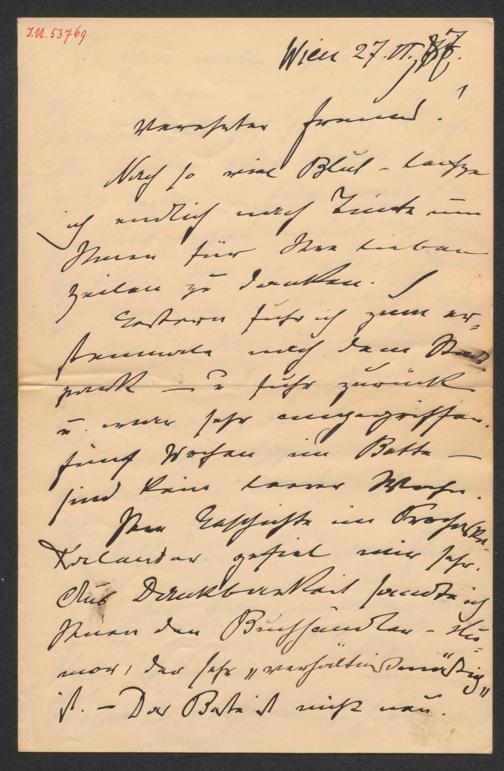 I.N. 53769
Wien 27. VI. 77.
Verehrter Freund!
Nach so viel Blut – lechze
ich endlich nach Tinte um
Ihnen für Ihre lieben
Zeilen zu danken.
Gestern fuhr ich zum er-
stenmale nach dem Stadt
park – u fuhr zurück
u. war sehr angegriffen.
Fünf Wochen im Bette –
sind kein leerer Wahn.
Ihre Geschichte im
Kalender gefiel mir sehr.
Aus Dankbarkeit sandte ich
Ihnen den Buchhändler-Hu-
mor, der sehr „verhältnißmäßig"
ist. – Das Beste ist nicht neu.